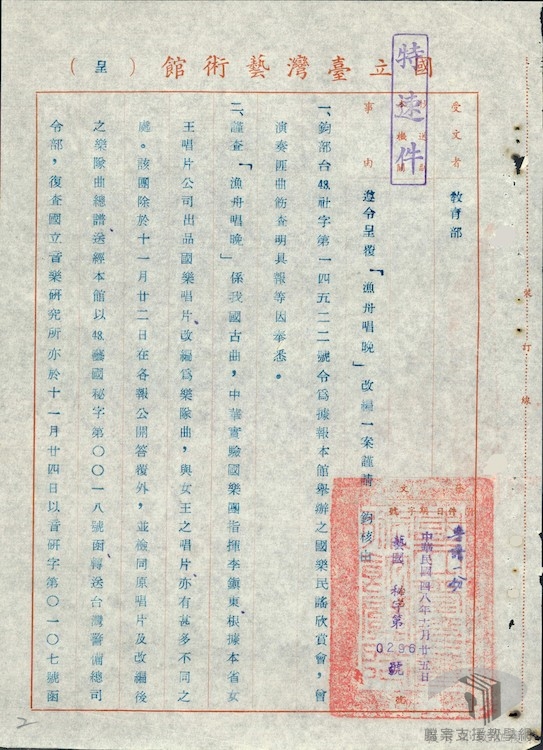 國立臺灣藝術館（呈）
特速件
受文者 教育部
事由 遵令呈覆「漁舟唱晚」改編一案謹請 鈞核由
一、鈞部台48.社字第一四五二二號令為據報本館舉辦之國樂民謠欣賞會，曾
演奏匪曲飭查明具報等因奉悉。
二、謹查「漁舟唱晚」係我國古曲，中華實驗國樂團指揮李鎮東根據本省女
王唱片公司出品國樂唱片改編為樂隊曲，與女王之唱片亦有甚多不同之
處。該團除於十一月廿二日在各報公開答覆外，並檢同原唱片及改編後
之樂隊曲總譜送經本館以48.藝國秘字第〇〇一八號函轉送台灣警備總司
令部，復查國立音樂研究所亦於十一月廿四日以音研字第〇一〇七號函
中華民國四八年 月廿五日
藝國秘字第0296號
裝訂線
2
檔案支援教學網